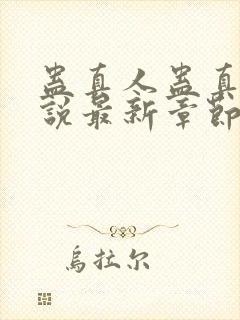 蛊真人蛊真
說最新章節
烏拉尔